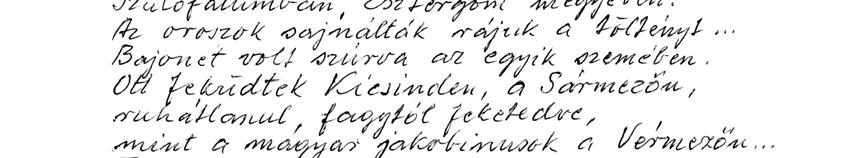 szülőfalumban, Esztergom megyében.
Az oroszok sajnálták rájuk a töltényt...
Bajonet volt szúrva az egyik szemében.
Ott feküdtek Kicsinden, a Sármezőn,
ruhátlanul, fagytól feketedve,
mint a magyar jakobinusok a Vérmezőn...